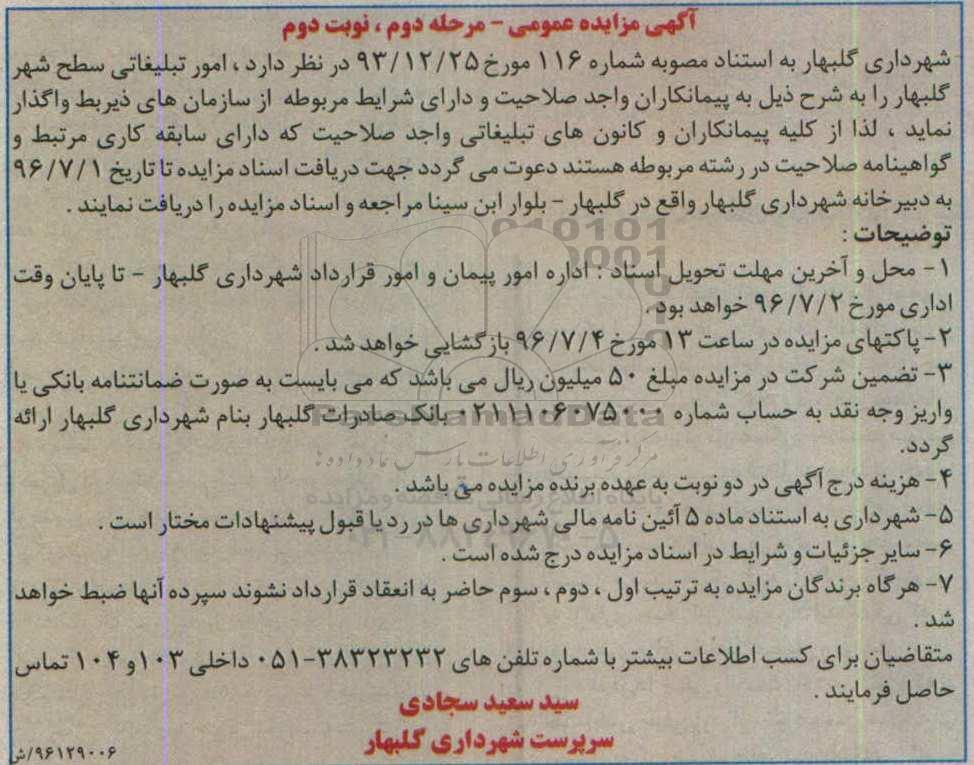 آگهی مزایده عمومی - مرحله دوم ، نوبت دوم
شهرداری گلبهار به استناد مصوبه شماره ۱۱۶ مورخ ۹۳/۱۲/۲۵ در نظر دارد ، امور تبلیغاتی سطح شهر
گلبهار را به شرح ذیل به پیمانکاران واجد صلاحیت و دارای شرایط مربوطه از سازمان های ذیربط واگذار
نماید ، لذا از کلیه پیمانکاران و کانون های تبلیغاتی واجد صلاحیت که دارای سابقه کاری مرتبط و
گواهینامه صلاحیت در رشته مربوطه هستند دعوت می گردد جهت دریافت اسناد مزایده تا تاریخ ۹۶/۷/۱
به دبیرخانه شهرداری گلبهار واقع در گلبهار - بلوار ابن سینا مراجعه و اسناد مزایده را دریافت نمایند .
توضیحات :
۱- محل و آخرین مهلت تحویل اسناد : اداره امور پیمان و امور قرارداد شهرداری گلبهار - تا پایان وقت
اداری مورخ ۹۶/۷/۲ خواهد بود .
۲- پاکتهای مزایده در ساعت ۱۳ مورخ ۹۶/۷/۴ بازگشایی خواهد شد .
۳- تضمین شرکت در مزایده مبلغ ۵۰ میلیون ریال می باشد که می بایست به صورت ضمانتنامه بانکی یا
واریز وجه نقد به حساب شماره ۰۲۱۱۱۰۶۰۷۵۰۰۰ بانک صادرات گلبهار بنام شهرداری گلبهار ارائه
گردد.
ParsNamadData
مرکز فرآوری اطلاعات پارس نماد داده ها
۴- هزینه درج آگهی در دو نوبت به عهده برنده مزایده می باشد .
۵- شهرداری به استناد ماده ۵ آئین نامه مالی شهرداری ها در رد یا قبول پیشنهادات مختار است .
۶- سایر جزئیات و شرایط در اسناد مزایده درج شده است .
۷- هرگاه برندگان مزایده به ترتیب اول ، دوم ، سوم حاضر به انعقاد قرارداد نشوند سپرده آنها ضبط خواهد
شد .
متقاضیان برای کسب اطلاعات بیشتر با شماره تلفن های ۳۸۳۲۳۲۳۲-۰۵۱ داخلی ۱۰۳ و ۱۰۴ تماس
حاصل فرمایند .
سید سعید سجادی
سرپرست شهرداری گلبهار
۹۶۱۲۹۰۰۶/ش